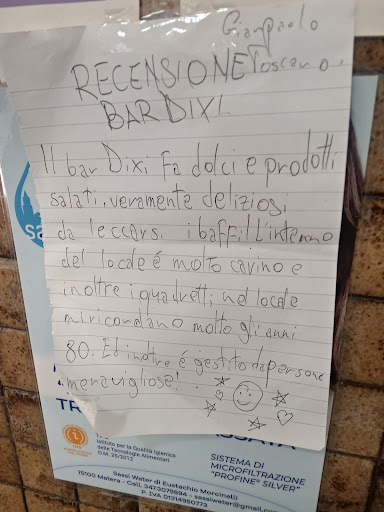 Gianpaolo
Toscano
RECENSIONE
BAR DIXI
Il bar Dixi fa dolci e prodotti
salati, veramente deliziosi
da leccarsi i baffi! L'interno
del locale é molto carino e
inoltre i quadretti nel locale
mi ricordano molto gli anni
80. Ed inoltre é gestito da persone
meravigliose!
Istituto per la Qualità Igienica
delle Tecnologie Alimentari
D.M. 25/2012
SISTEMA DI
MICROFILTRAZIONE
"PROFINE® SILVER"
Sassi Water di Eustachio Morcinelli
75100 Matera - Cell. 3473079894 - sassiwater@gmail.com
P. IVA 01314950773